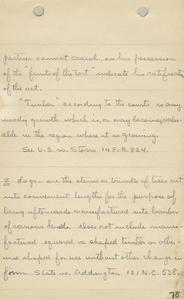 partner cannot avail, as his possession
of the "fruits of the tort" indicate his ratification
of the act.
"Timber" according to the courts is any
woody growth which is, or may become, valu-
able in the region where it is growing.
See U.S. vs. Stores 14 F.R. 824.
2 Logs are the stems or trunks of trees cut
into convenient lengths for the purpose of
being afterwards manufactured into lumber
of various kinds does not include manu-
factured squared or shaped timber or other-
wise shaped for use without other change in
form. State vs. Addington. 121 N.C. 538.
78